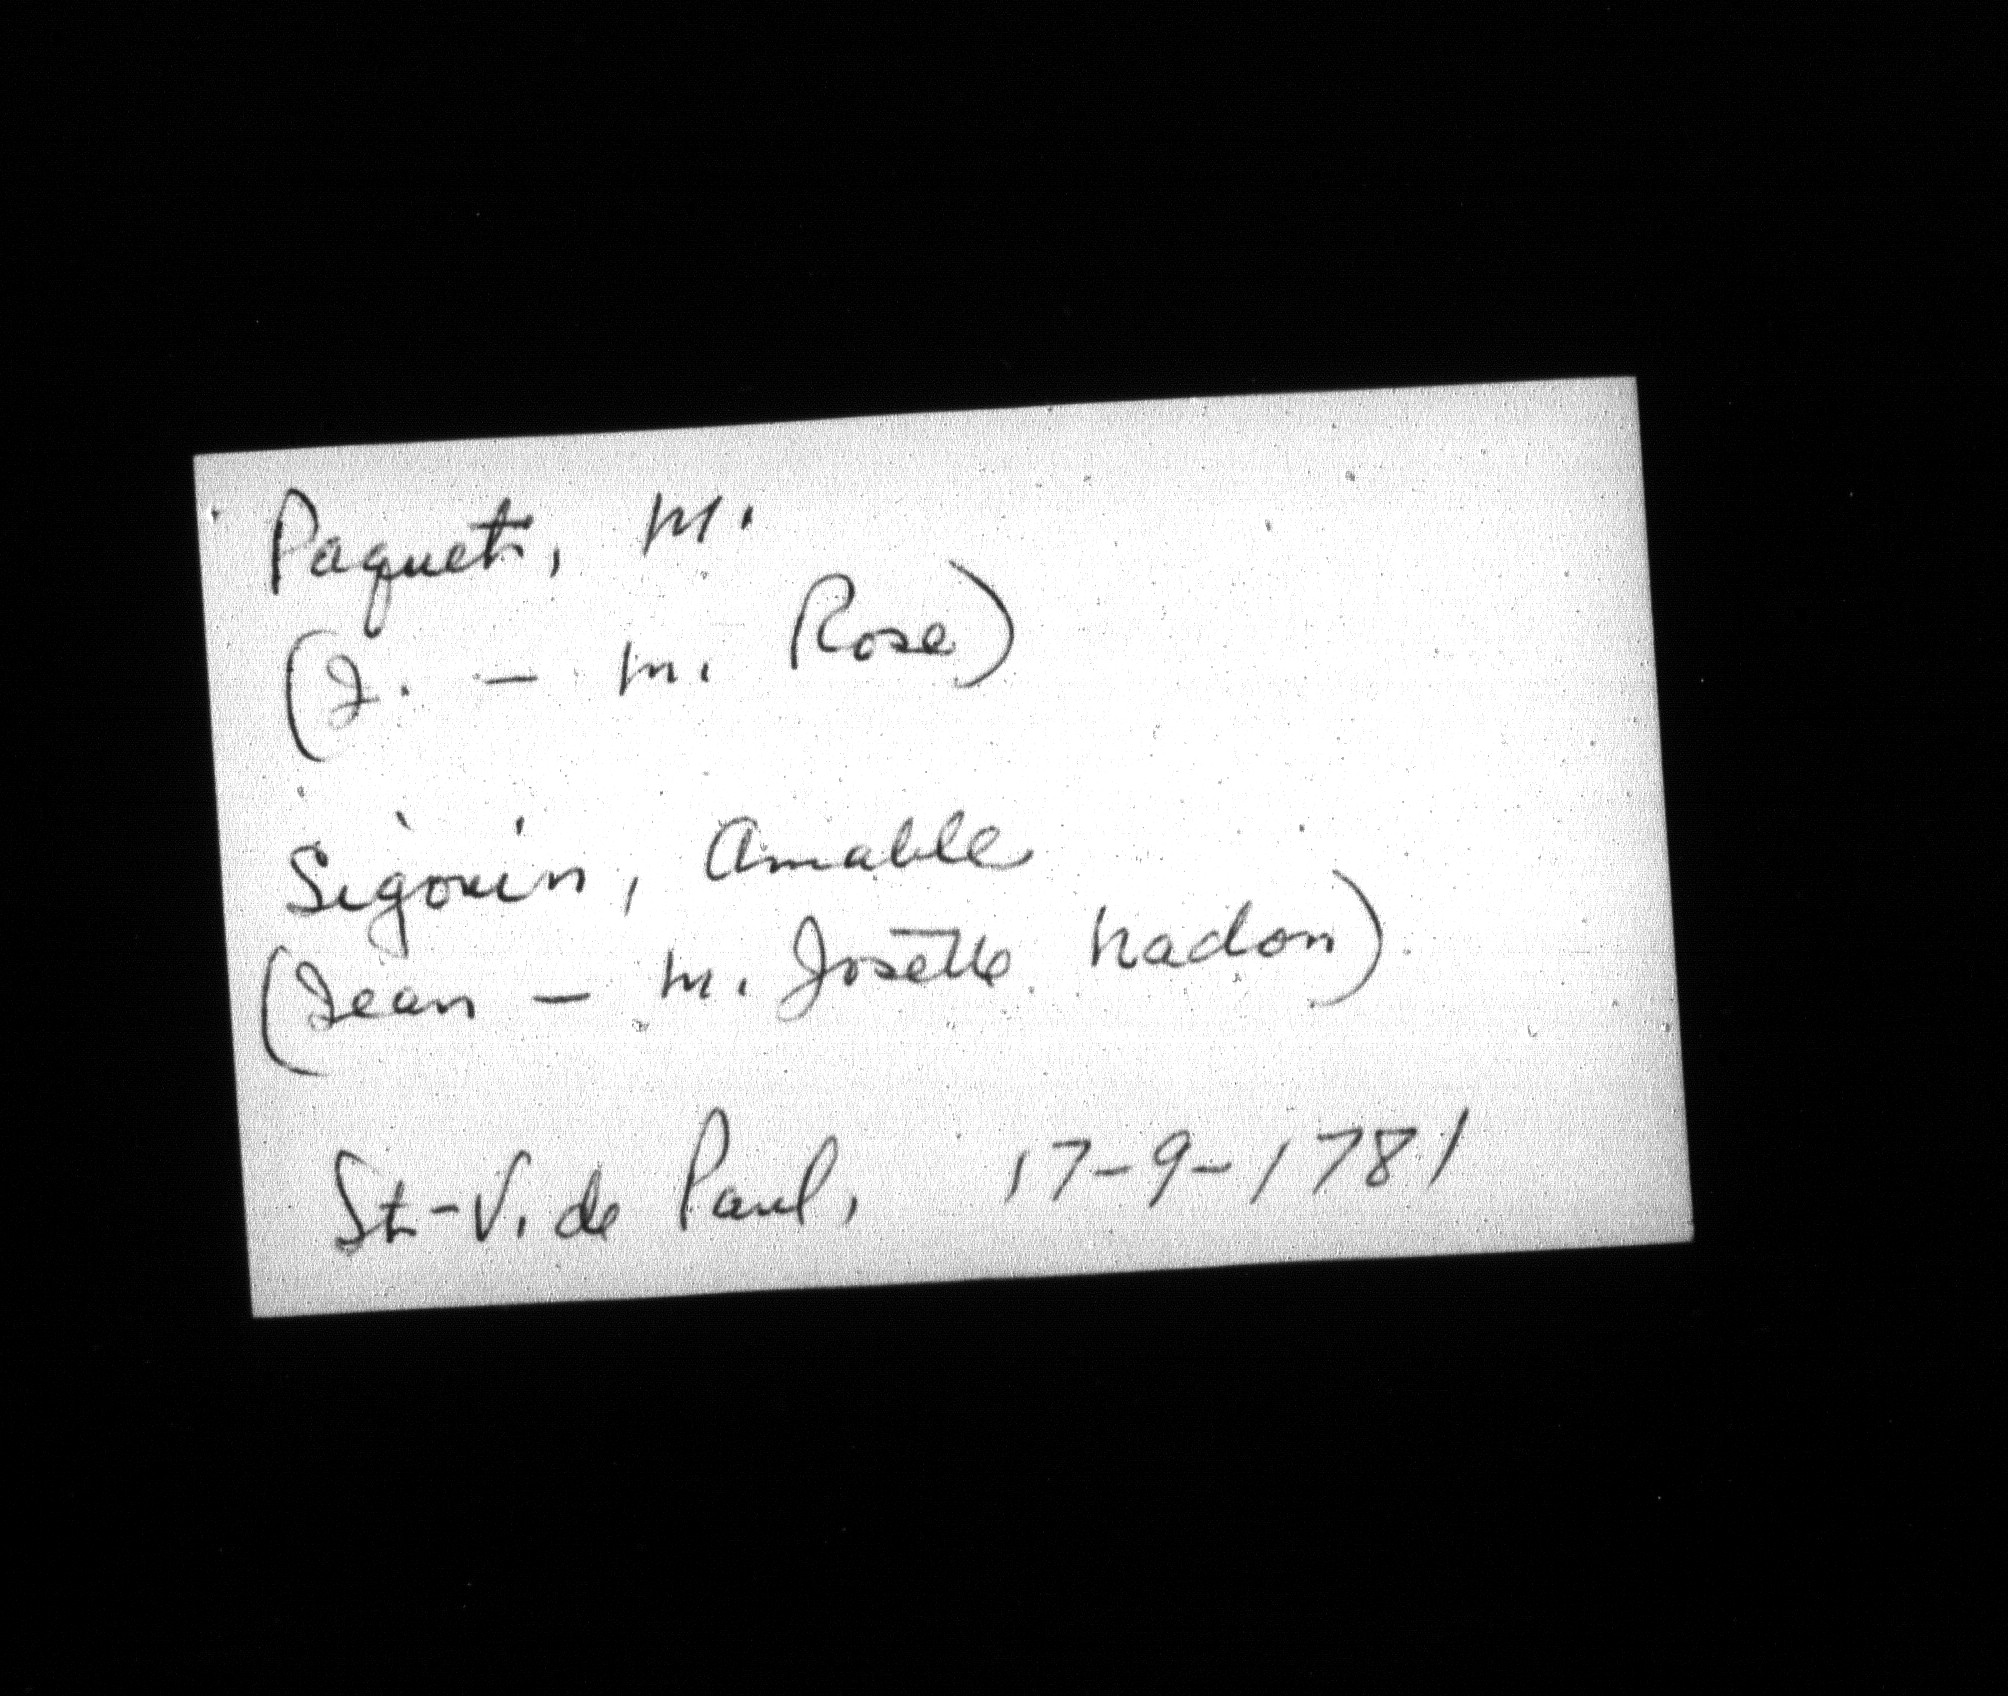 Paquet, M.
(J. - M. Rose)
Sigouin, Amable
(Jean - M. Josette Nadon)
St-V. de Paul, 17-9-1781